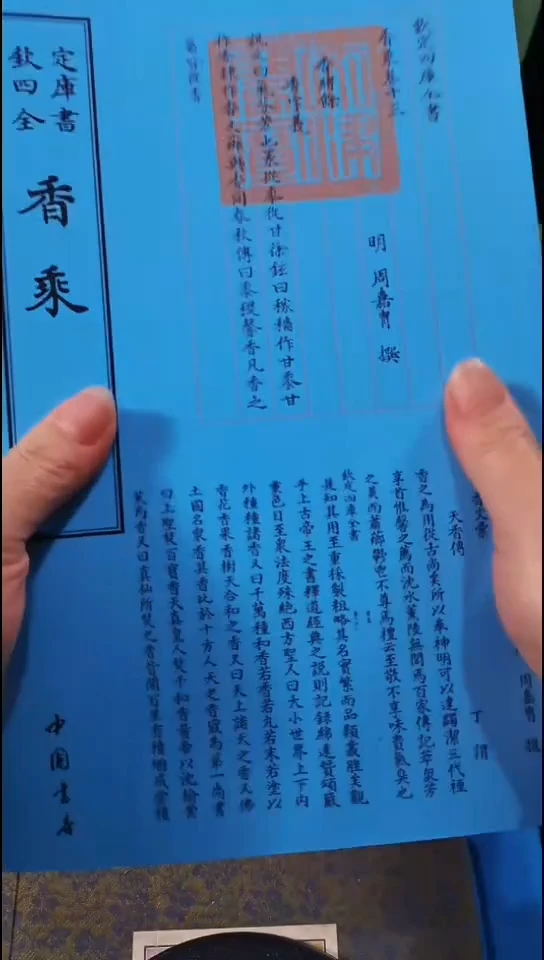 欽定四庫全書
香乘
欽定四庫全書
明 周嘉胄 撰
香緒餘
香字義
說文曰氣芬芳也篆從黍從甘徐鉉曰稼穡作甘黍甘
作香隸作香又薌與香同春秋傳曰黍稷馨香凡香之
周嘉胄 撰
香文彙
天香傳 丁謂
香之為用從古尚矣所以奉神明可以達蠲潔三代禋
享首惟馨之薦而沈水薰陸無聞焉百家傳記萃衆芳
之美而蕭薌鬱鬯不尊焉禮云至敬不享味貴氣臭也
欽定四庫全書
是知其用至重採製粗略其名實繁而品類叢脞矣觀
乎上古帝王之書釋道經典之說則記錄綿遠贊頌嚴
重色目至衆法度殊絶西方聖人曰大小世界上下内
外種種諸香又曰千萬種和香若香若丸若末若塗以
香花香果香樹天合和之香又曰天上諸天之香又佛
土國名衆香其香比於十方人天之香最為第一尚書
曰上聖焚百寶香天真皇人焚千和香黃帝以沈榆蓂
莢為香又曰真仙所焚之香皆聞百里有積烟成雲積
中國書店